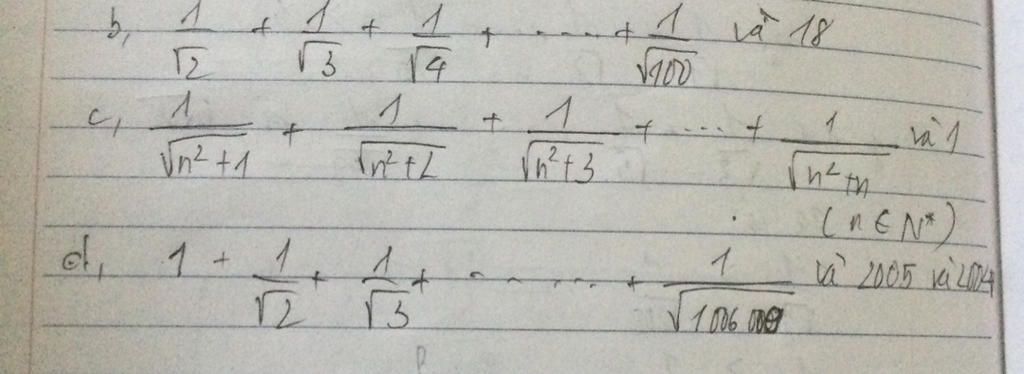 b, 1/√2 + 1/√3 + 1/√4 + ..... + 1/√100 và 18
c, 1/√(n²+1) + 1/√(n²+2) + 1/√(n²+3) + ... + 1/√(n²+n) và 1
(n ∈ N*)
d, 1 + 1/√2 + 1/√3 + ...... + 1/√1006009 và 2005 và 2004